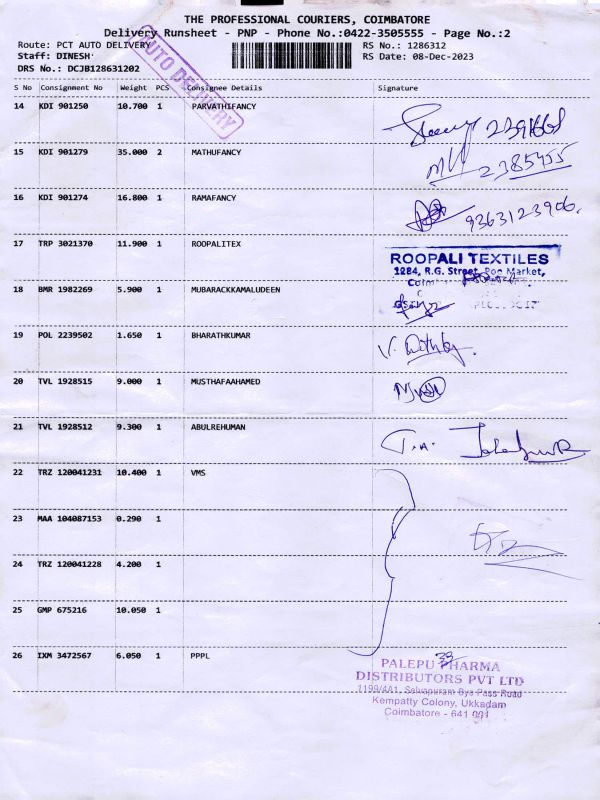 THE PROFESSIONAL COURIERS, COIMBATORE
Delivery Runsheet - PNP - Phone No.:0422-3505555 - Page No.:2
Route: PCT AUTO DELIVERY
RS No.: 1286312
Staff: DINESH
RS Date: 08-Dec-2023
DRS No.: DCJB128631202
AUTO DELIVERY
S No Consignment No Weight PCS Consignee Details Signature
14 KDI 901250 10.700 1 PARVATHIFANCY
15 KDI 901279 35.000 2 MATHUFANCY 2385455
16 KDI 901274 16.800 1 RAMAFANCY 9363123906.
17 TRP 3021370 11.900 1 ROOPALITEX
ROOPALI TEXTILES
1284, R.G. Street, Market,
18 BMR 1982269 5.900 1 MUBARACKKAMALUDEEN
19 POL 2239502 1.650 1 BHARATHKUMAR
20 TVL 1928515 9.000 1 MUSTHAFAAHAMED
21 TVL 1928512 9.300 1 ABULREHUMAN
22 TRZ 120041231 10.400 1 VMS
23 MAA 104087153 0.290 1
24 TRZ 120041228 4.200 1
25 GMP 675216 10.050 1
26 IXM 3472567 6.050 1 PPPL
PALEPU PHARMA
DISTRIBUTORS PVT LTD
1199/4A1, Selvapuram Bye Pass Road
Kempatty Colony, Ukkadam
Coimbatore - 641 001